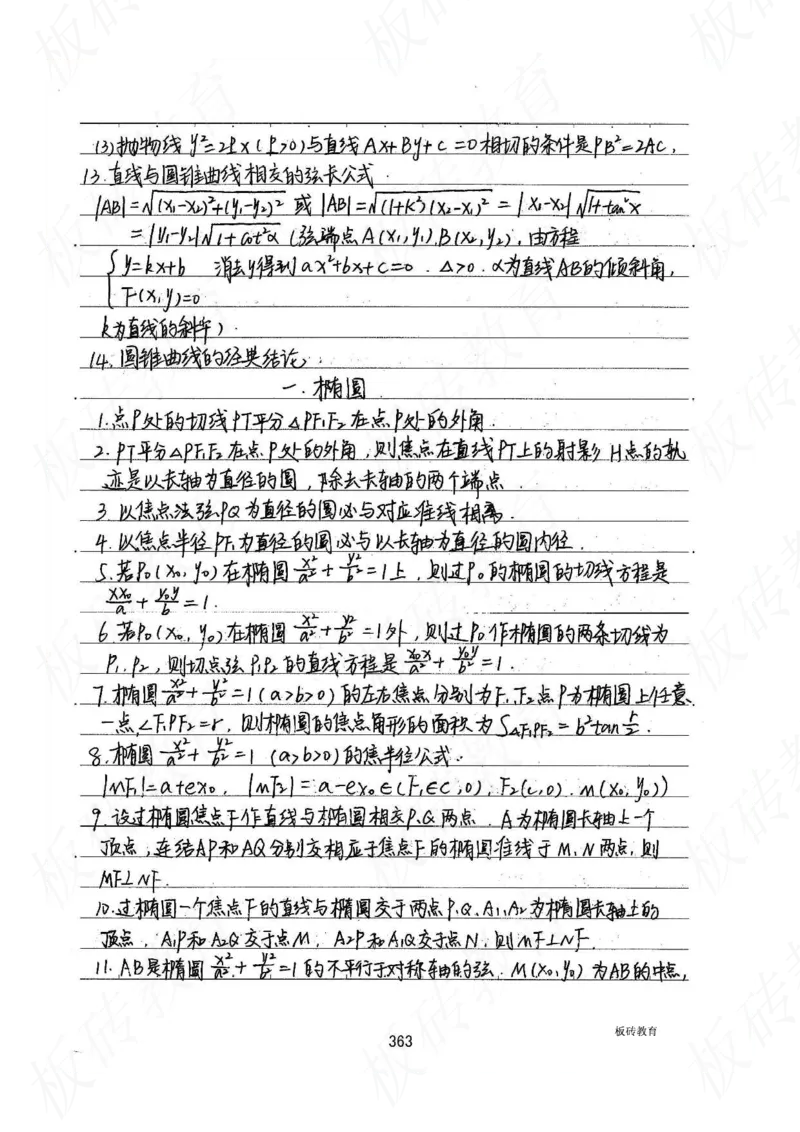 (3)抛物线 y²=2Px(P>0)与直线Ax+By+C=0相切的条件是PB²=2AC,
13.直线与圆锥曲线相交的弦长公式.
|AB|=√(x₁-x₂)²+(y₁-y₂)² 或|AB|=√(1+k²)(x₂-x₁)² =|x₁-x₂|√1+tan²x
=|y₁-y₂|√1+cot²α (弦端点A(x₁,y₁).B(x₂,y₂),由方程
{y=kx+b 消去y得到ax²+bx+c=0.Δ>0.α为直线AB的倾斜角,
F(x,y)=0
k为直线的斜率).
14.圆锥曲线的经典结论.
一.椭圆
1.点P处的切线PT平分△PF₁F₂在点P处的外角.
2.PT平分△PF₁F₂在点P处的外角,则焦点在直线PT上的射影H点的轨
迹是以长轴为直径的圆,除去长轴的两个端点.
3.以焦点法弦PQ为直径的圆必与对应准线相离.
4.以焦点半径PF₁为直径的圆必与以长轴为直径的圆内径.
5.若P₀(x₀,y₀)在椭圆x²/a²+y²/b²=1上,则过P₀的椭圆的切线方程是
xx₀/a+y₀y/b=1.
6.若P₀(x₀,y₀)在椭圆x²/a²+y²/b²=1外,则过P₀作椭圆的两条切线为
P₁.P₂,则切点弦P₁P₂的直线方程是x₀x/a²+y₀y/b²=1.
7.椭圆x²/a²+y²/b²=1(a>b>0)的左右焦点分别为F₁.F₂点P为椭圆上任意
一点∠F₁PF₂=r,则椭圆的焦点角形的面积为S△F₁PF₂=b²tan r/2.
8.椭圆x²/a²+y²/b²=1 (a>b>0)的焦半径公式.
|MF₁|=a+ex₀, |MF₂|=a-ex₀∈(F₁∈c,0),F₂(c,0).M(x₀,y₀))
9.设过椭圆焦点F作直线与椭圆相交P.Q两点.A为椭圆长轴上一个
顶点,连结AP和AQ分别交相应于焦点F的椭圆准线于M,N两点,则
MF⊥NF.
10.过椭圆一个焦点F的直线与椭圆交于两点P.Q.A₁,A₂为椭圆长轴上的
顶点,A₁P和A₂Q交于点M,A₂P和A₁Q交于点N,则MF⊥NF.
11.AB是椭圆x²/a²+y²/b²=1的不平行于对称轴的弦,M(x₀,y₀)为AB的中点,
板砖教育
363